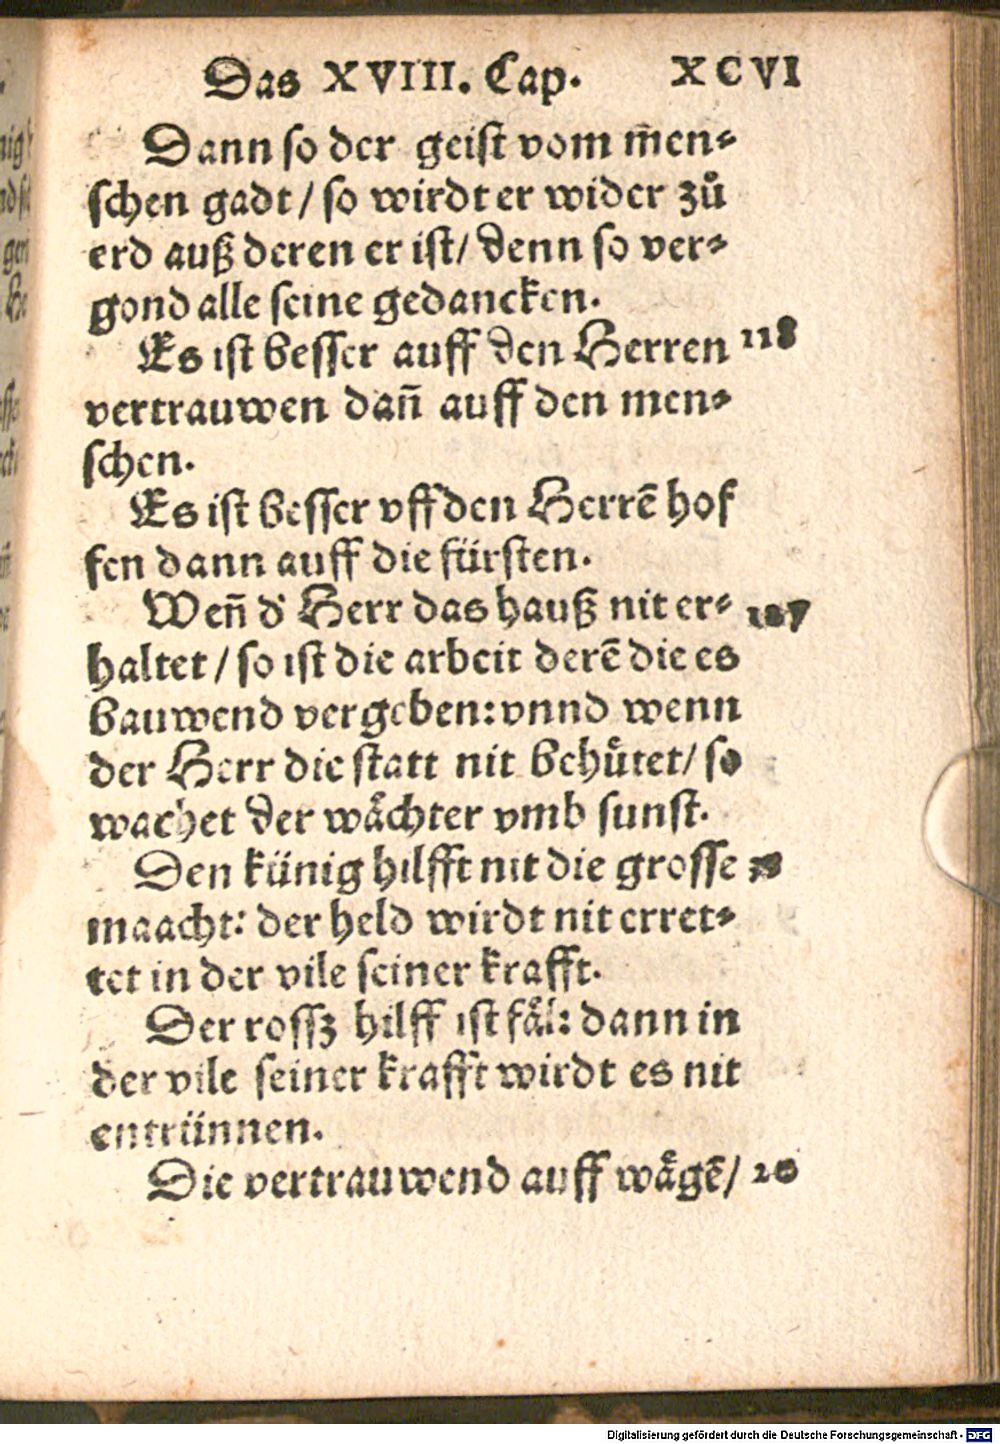 Das XVIII. Cap. XCVI
Dann so der geist vom m̄en⸗
schen gadt / so wirdt er wider zů
erd auß deren er ist / denn so ver⸗
gond alle seine gedancken.
Es ist besser auff den Herren 118
vertrauwen dañ auff den men⸗
schen.
Es ist besser vff den Herrē hof
fen dann auff die fürsten.
Weñ d' Herr das hauß nit er⸗ 127
haltet / so ist die arbeit derē die es
bauwend vergeben: vnnd wenn
der Herr die statt nit behůtet / so
wachet der wåchter vmb sunst.
Den künig hilfft nit die grosse
maacht: der held wirdt nit erret⸗
tet in der vile seiner krafft.
Der rossz hilff ist fål: dann in
der vile seiner krafft wirdt es nit
entrünnen.
Die vertrauwend auff wågē / 20
Digitalisierung gefördert durch die Deutsche Forschungsgemeinschaft - DFG